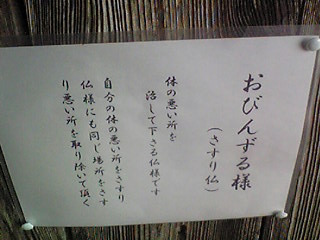 おびんずる様
(さすり仏)
体の悪い所を
治して下さる仏様です
自分の体の悪い所をさすり
仏様にも同じ場所をさす
り悪い所を取り除いて頂く